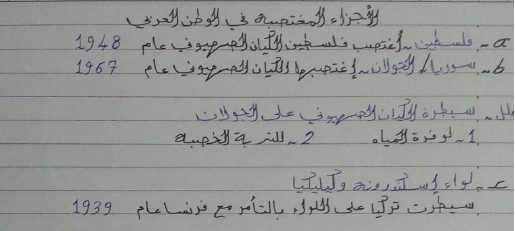 الأجزاء المغتصبة في الوطن العربي
a- فلسطين - إغتصب فلسطين الكيان الصهيوني عام 1948
b- سوريا / الجولان - إغتصبها الكيان الصهيوني عام 1967
علل - سيطرة الكيان الصهيوني على الجولان
1- لوفرة المياه 2- للتربة الخصبة
c- لواء إسكندرونة وكيليكيا
سيطرت تركيا على اللواء بالتآمر مع فرنسا عام 1939